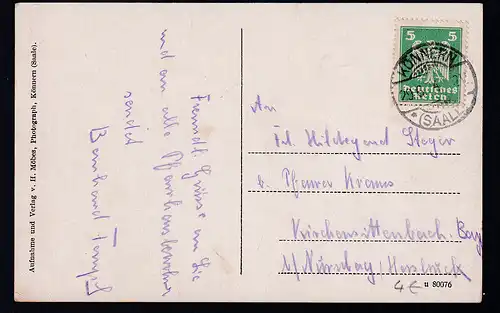 Aufnahme und Verlag v. H. Möbes, Photograph, Könnern (Saale).
Freundl. Grüsse an Sie
und an alle Pfarrhausbewohner
sendet
Bernhard
5 5
Deutsches
Reich
KÖNNERN
* (SAALE)
An
Frl. Hildegard Steger
b. Pfarrer Kraus
Kirchensittenbach Bay
b/ Nürnberg / Hersbruck
4€
u 80076